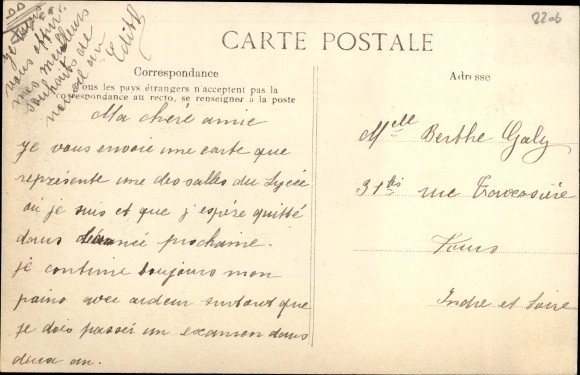 2206
CARTE POSTALE
Correspondance
Tous les pays étrangers n'acceptent pas la
correspondance au recto, se renseigner à la poste
Adresse
Ma cheré amie
je vous envoie une carte que
représente une des salles du Lycée
où je suis et que j'espère quitté
dans prochaine.
je continue toujours mon
piano avec ardeur surtout que
je dois passer un examen dans
deux an.
vous offrir
mes meilleurs
souhaits de
nouvel an
Edith
Melle Berthe Galy
31bis rue Traversière
Tours
Indre et Loire